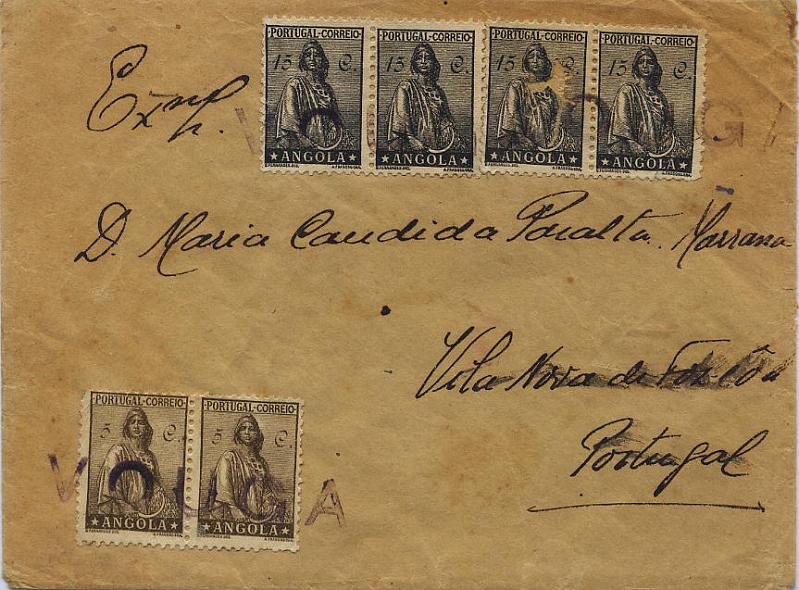 PORTUGAL-CORREIO PORTUGAL-CORREIO PORTUGAL-CORREIO PORTUGAL-CORREIO
15 C. 15 C. 15 C. 15 C.
ANGOLA ANGOLA ANGOLA ANGOLA
D. Maria Candida Paralta Marrana
Vila Nova de Foz Côa
Portugal
PORTUGAL-CORREIO PORTUGAL-CORREIO
5 C. 5 C.
VOUGA
ANGOLA ANGOLA